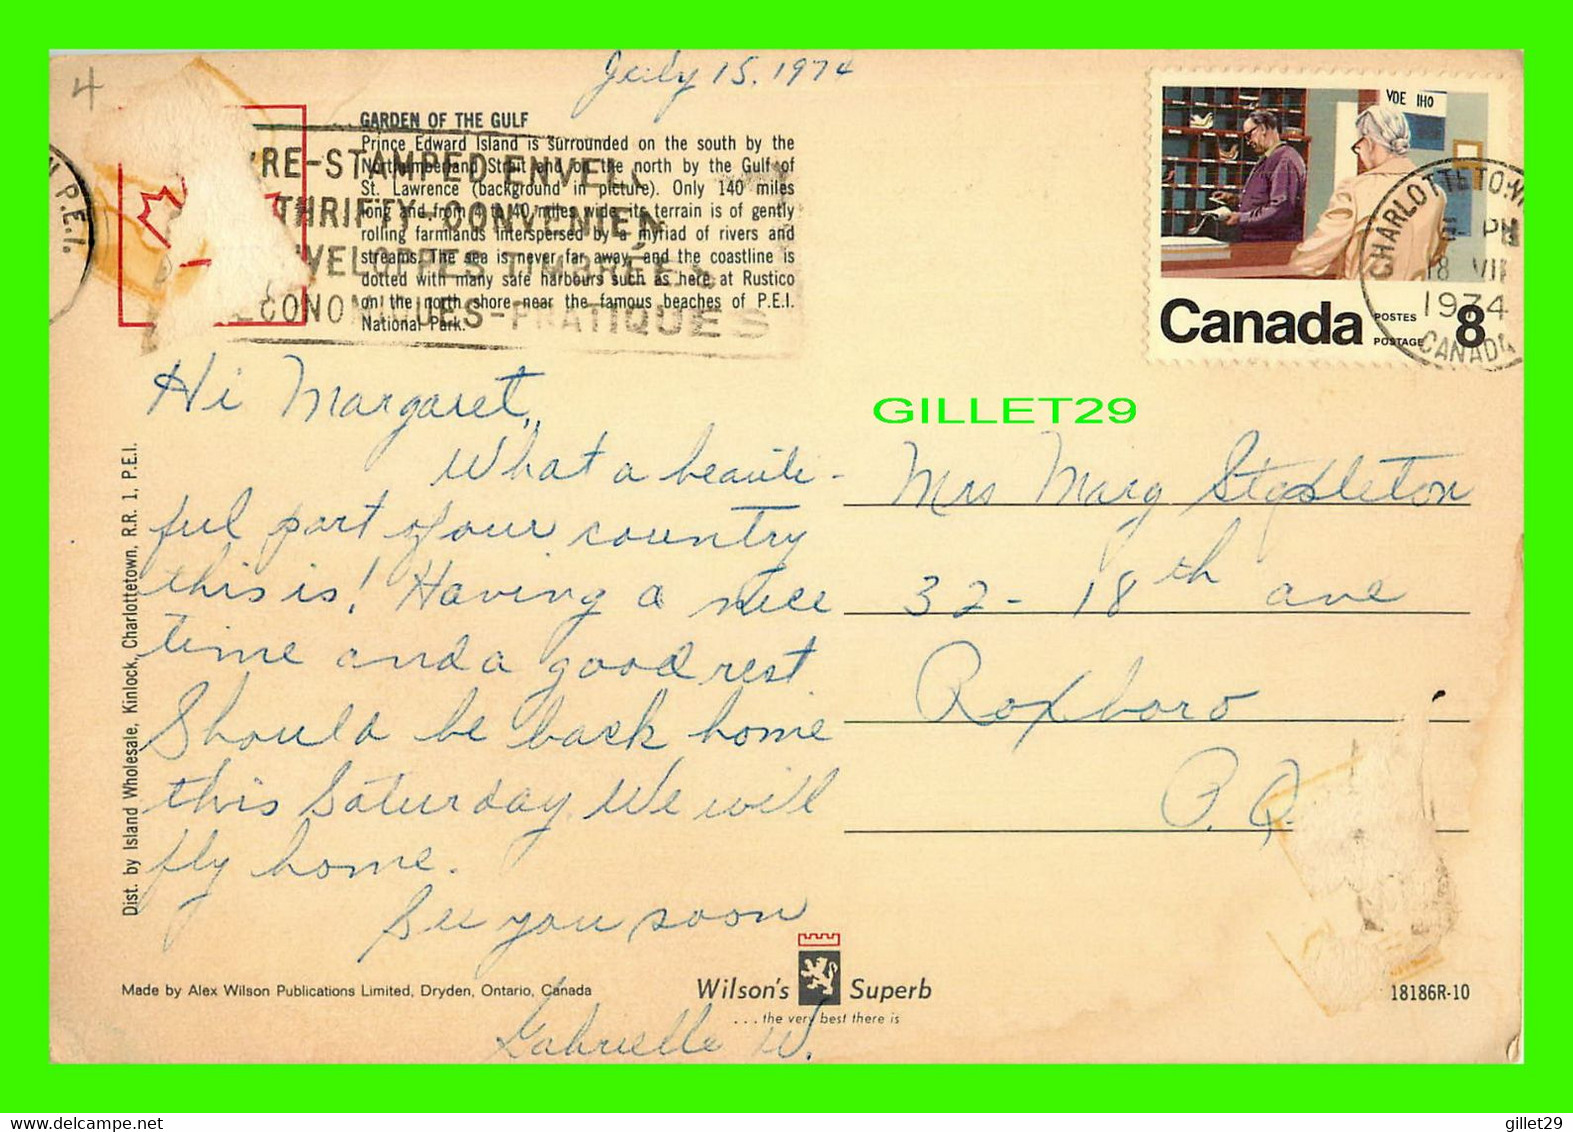 4
July 15, 1974
GARDEN OF THE GULF
Prince Edward Island is surrounded on the south by the
Northumberland Strait and on the north by the Gulf of
St. Lawrence (background in picture). Only 140 miles
long and from 4 to 40 miles wide, its terrain is of gently
rolling farmlands interspersed by a myriad of rivers and
streams. The sea is never far away, and the coastline is
dotted with many safe harbours such as here at Rustico
on the north shore near the famous beaches of P.E.I.
National Park.
'RE-STAMPED ENVELO
THRIFTY-CONVENIEN
VELOPPES TIMBRÉES
CONOMIQUES-PRATIQUES
N P.E.I.
VOE IHO
Canada POSTES POSTAGE 8
CHARLOTTETOWN
PM
18 VII
1974
CANADA
GILLET29
Hi Margaret,
What a beauti-
ful part of our country
this is! Having a nice
time and a good rest.
Should be back home
this Saturday. We will
fly home.
See you soon
Gabrielle W.
Mrs Marg Stapleton
32 - 18th ave
Roxboro
P.Q.
Dist. by Island Wholesale, Kinlock, Charlottetown, R.R. 1, P.E.I.
Made by Alex Wilson Publications Limited, Dryden, Ontario, Canada
Wilson's Superb
... the very best there is
18186R-10
gillet29